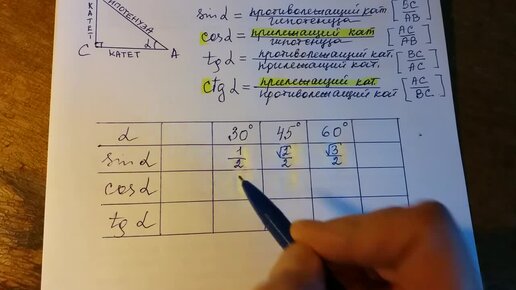 КАТЕТ
ГИПОТЕНУЗА
C
КАТЕТ
α
A
sin α = противолежащий кат / гипотенуза [BC/AB]
cos α = прилежащий кат / гипотенуза [AC/AB]
tg α = противолежащий кат. / прилежащий кат. [BC/AC]
ctg α = прилежащий кат. / противолежащий кат [AC/BC]
α 30° 45° 60°
sin α 1/2 √2/2 √3/2
cos α
tg α